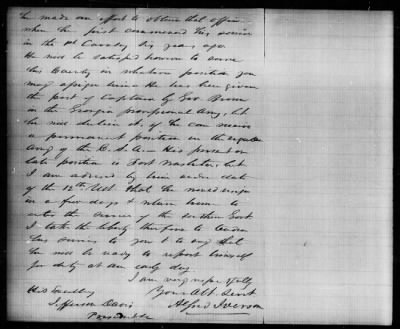 he made an effort to obtain that office
when he first commenced his service
in the 1st Cavalry six years ago.
He will be satisfied however to serve
his Country in whatever position you
may assign him. He has been given
the post of Captain by Gov Brown
in the Georgia provisional Army, but
he will decline it, if he can receive
a permanent position in the regular
Army of the C. S. A. His present or
late position is Fort Washita, but
I am advised by him under date
of the 12th Ult that he would resign
in a few days & return home to
enter the service of the Southern Govt
I take the liberty therefore to tender
his services to you & to say that
he will be ready to report himself
for duty at an early day
I am very respectfully
Your Obt Servt
Alfred Iverson
His Excellency
Jefferson Davis
President